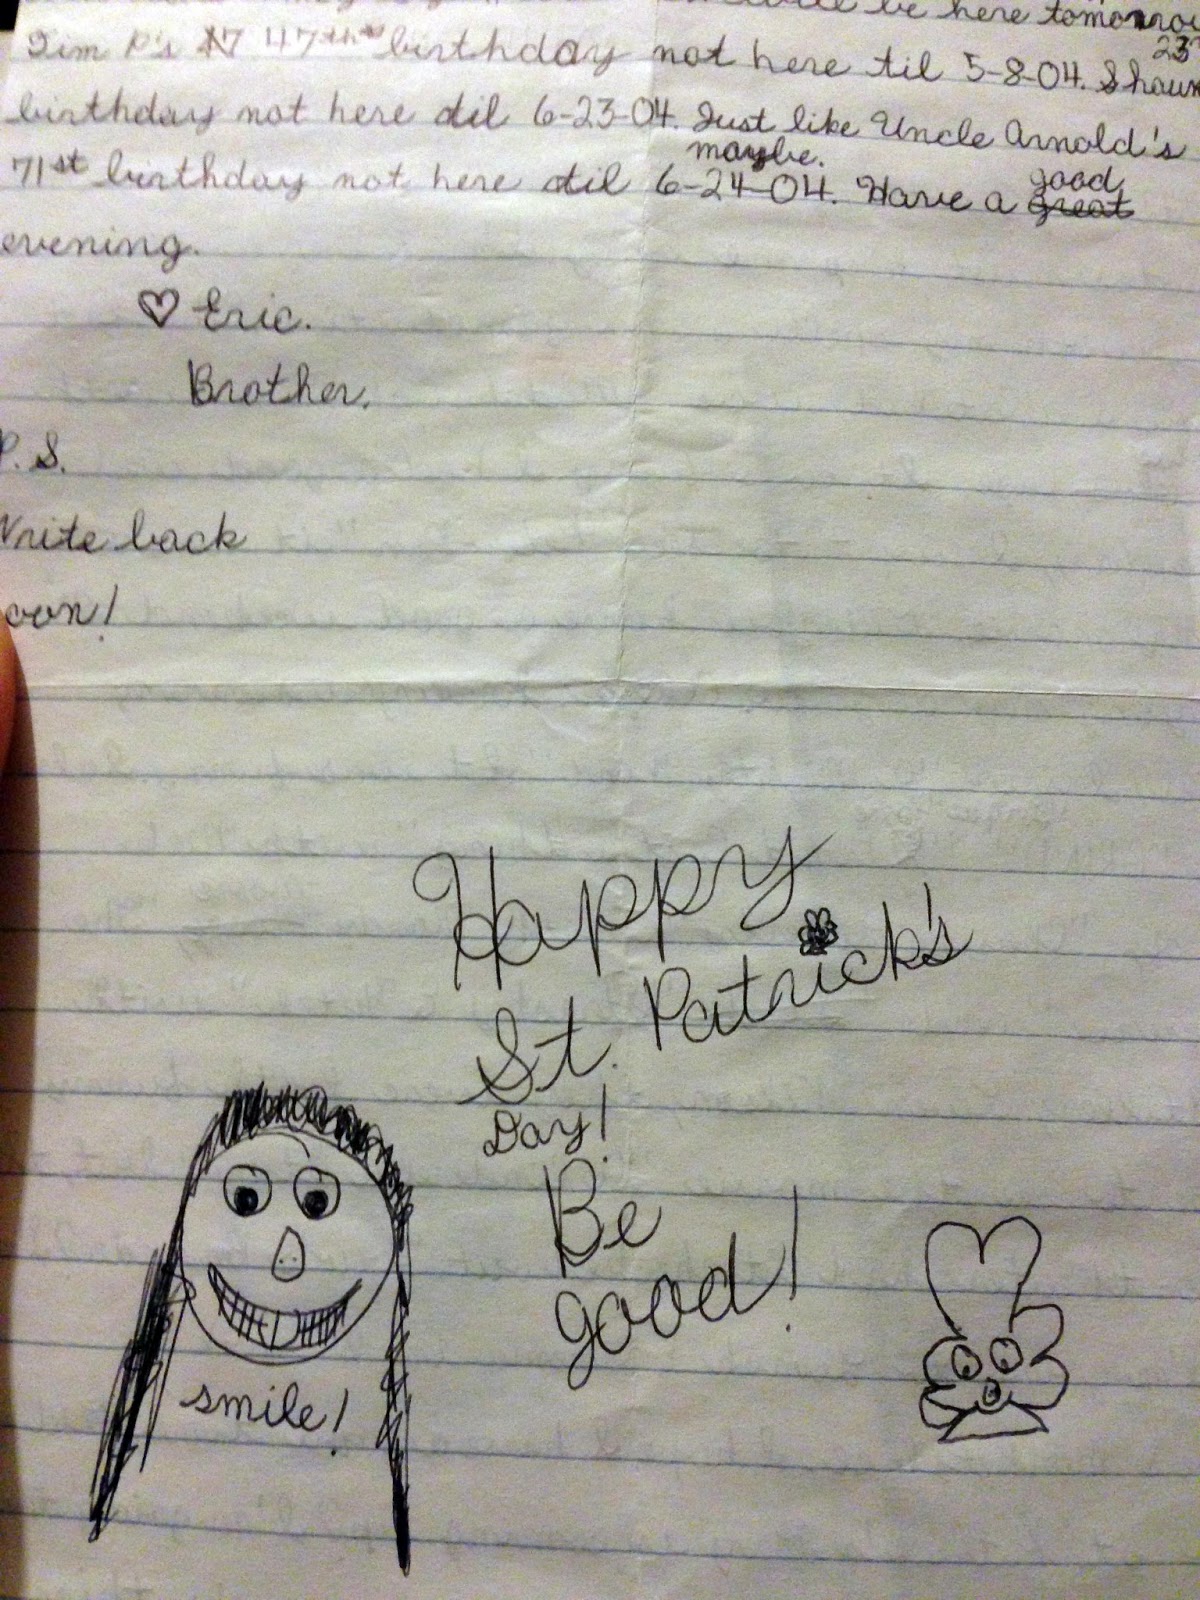 be here tomorrow
Tim P's 47th birthday not here til 5-8-04. Shaun
23
birthday not here til 6-23-04. Just like Uncle Arnold's
maybe.
71st birthday not here til 6-24-04. Have a good great
evening.
♡ Eric.
Brother.
P.S.
Write back
oon!
Happy
St. Patrick's
Day!
Be
good!
smile!